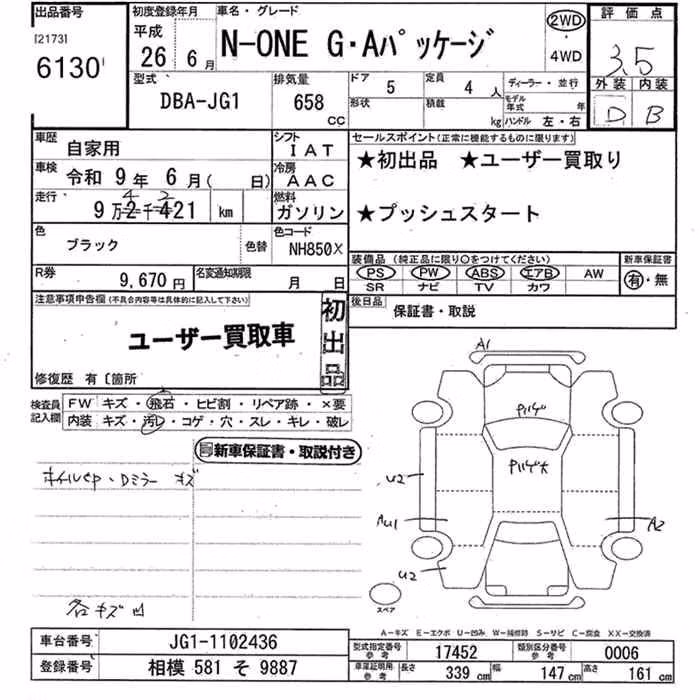 出品番号
[2173]
6130
初度登録年月
平成
26 年 6 月
車名・グレード
N-ONE G・Aパッケージ
2WD
・
4WD
評価点
3.5
外装 内装
D B
型式
DBA-JG1
排気量
658
CC
ドア
5
定員
4 人
ディーラー・並行
形状
積載
kg
モデル年式 年
ハンドル 左・右
車歴
自家用
シフト
IAT
車検
令和 9 年 6 月( 日)
冷房
AAC
走行
9 万 2 千 421 km
4 2
燃料
ガソリン
セールスポイント(正常に機能するものに限ります)
★初出品 ★ユーザー買取り
★プッシュスタート
色
ブラック
色替
色コード
NH850X
装備品 (純正品に限り○をつけてください)
PS PW ABS エアB AW
SR ナビ TV カワ
新車保証書
有・無
R券
9,670 円
名変通知期限
月 日
後日品
保証書・取説
注意事項申告欄(不具合内容等は具体的に記入して下さい)
ユーザー買取車
初出品
修復歴 有〔箇所
検査員
記入欄
FW キズ・飛石・ヒビ割・リペア跡・×要
内装 キズ・汚レ・コゲ・穴・スレ・キレ・破レ
新車保証書・取説付き
・Dミラー キズ
各キズ凹
A1
U2
AU1
U2
A2
スペア
A-キズ E-エクボ U-凹み W-補修跡 S-サビ C-腐食 XX-交換済
車台番号
JG1-1102436
登録番号
相模 581 そ 9887
型式指定番号
参考
17452
類別区分番号
参考
0006
車庫証明用
参考
長さ
339 cm
幅
147 cm
高さ
161 cm